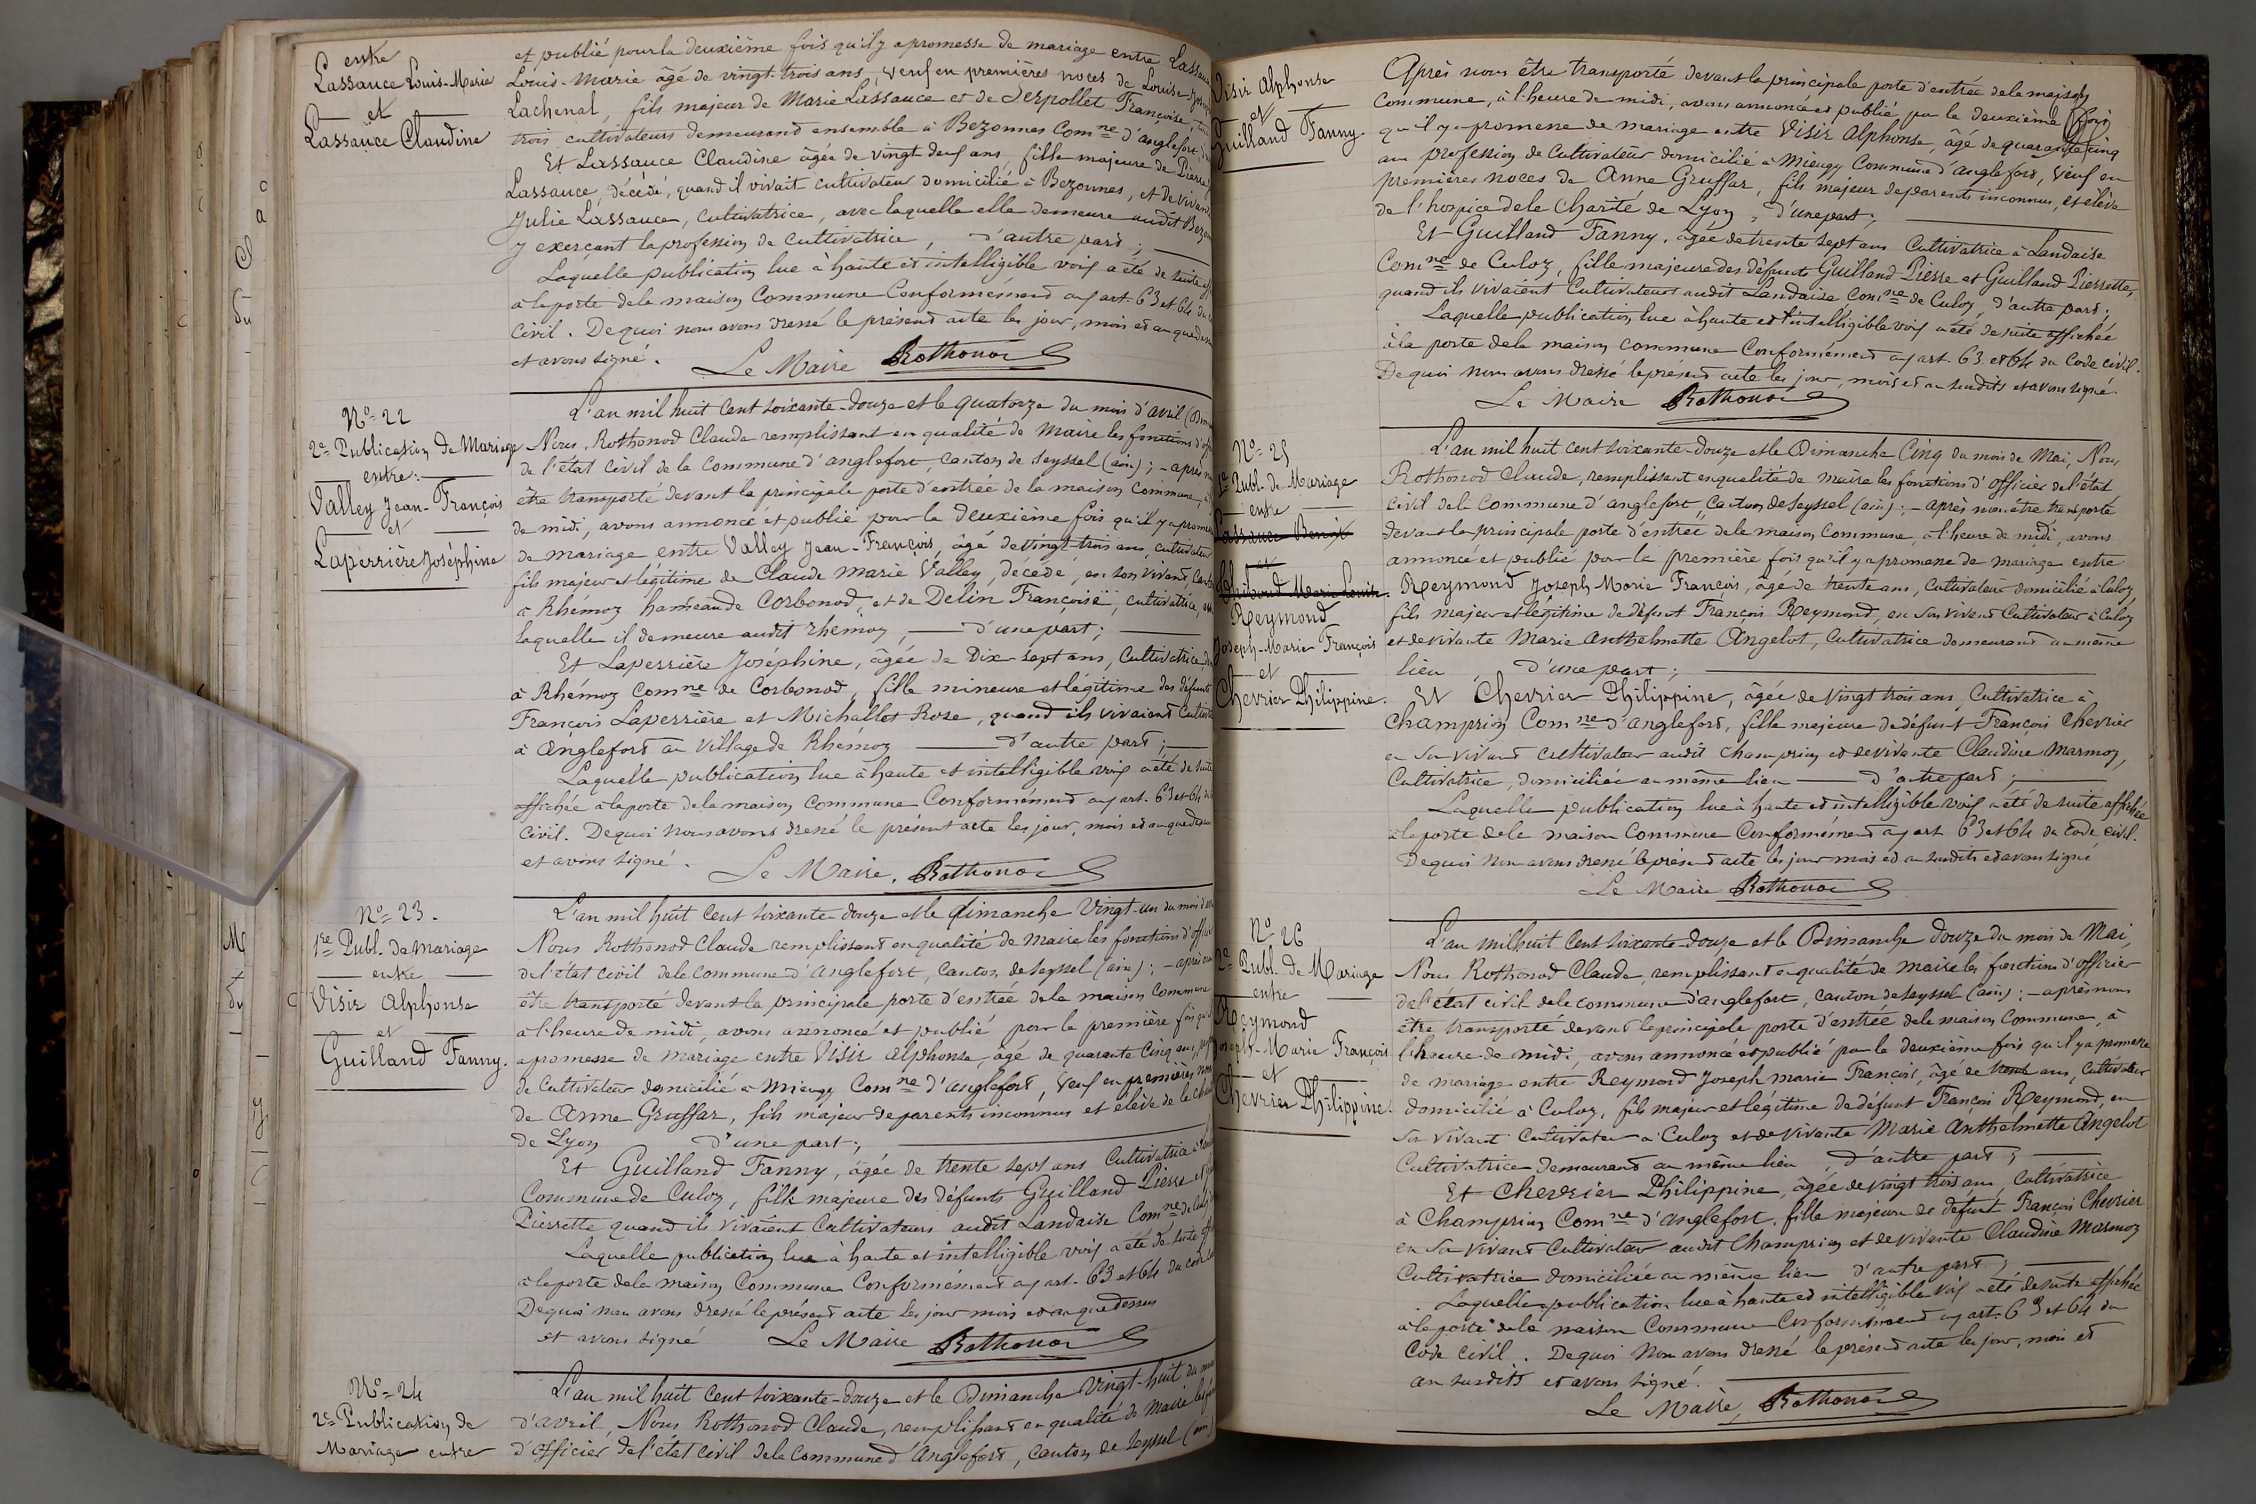 entre
Lassauce Louis-Marie
et
Lassauce Claudine
et publié pour la deuxième fois qu'il y a promesse de mariage entre Lassauce
Louis-Marie âgé de vingt-trois ans, veuf en premières noces de Louise
Lachenal, fils majeur de Marie Lassauce et de Serpollet Françoise, tous
trois cultivateurs demeurand ensemble à Bezonnes Comne d'anglefort,
Et Lassauce Claudine âgée de vingt-deuf ans, fille majeure de Pierre
Lassauce, décédé, quand il vivait cultivateur domicilié à Bezonnes, et de vivante
Julie Lassauce, cultivatrice, avec laquelle elle demeure audit
y exerçant la profession de cultivatrice, d'autre pard;
Laquelle publication lue à haute et intelligible voix a été de suite
à la porte de la maison Commune Conformémend aux art. 63 et 64 du
civil. De quoi nous avons dressé le présend acte les jour, mois et an que dessus
et avons signé. Le Maire Rothonod
No= 22
2e Publication de Mariage
entre:
Valley Jean-François
et
Laperrière Joséphine
L'an mil huit Cent soixante-douze et le quatorze du mois d'avril
Nous, Rothonod Claude remplissant en qualité de Maire les fonctions
de l'état civil de la Commune d'anglefort, canton de Seyssel (ain); - après
être transporté devant la principale porte d'entrée de la maison Commune,
de midi, avons annoncé et publié pour la deuxième fois qu'il y a
de mariage entre Valley Jean-François, âgé de vingt-trois ans, cultivateur
fils majeur et légitime de Claude Marie Valley, décédé, en son vivand,
à Rhémoz hameau de Corbonod, et de Delin Françoise, cultivatrice,
laquelle il demeure audit Rhémoz, d'une part;
Et Laperrière Joséphine, âgée de Dix-sept ans, Cultivatrice,
à Rhémoz Comne de Corbonod, fille mineure et légitime des défunts
François Laperrière et Michallet Rose, quand ils vivaiend
à Anglefort au village de Rhémoz d'autre pard;
Laquelle publication lue à haute et intelligible voix a été de suite
affichée à la porte de la maison Commune Conformémend aux art. 63 et 64
civil. De quoi nous avons dressé le présent acte les jour, mois et an que dessus
et avons signé. Le Maire, Rothonod
No= 23.
1re Publ. de Mariage
entre
Visir Alphonse
et
Guilland Fanny.
L'an mil huit Cent soixante-douze et le dimanche Vingt-un du mois
Nous Rothonod Claude remplissand en qualité de Maire les fonctions
de l'état civil de la Commune d'anglefort, canton de Seyssel (ain); - après
être transporté devant la principale porte d'entrée de la maison Commune
à l'heure de midi, avons annoncé et publié pour la première fois
a promesse de mariage entre Visir Alphonse, âgé de quarante cinq ans,
de Cultivateur domicilié à Mieugy Comne d'anglefort, Veuf en premières
de Anne Gruffaz, fils majeur de parents inconnus et élève de
de Lyon d'une part;
Et Guilland Fanny, âgée de trente sept ans Cultivatrice
Commune de Culoz, fille majeure des défunts Guilland Pierre
Pierrette quand ils vivaient Cultivateurs audit Landaise Comne
Laquelle publication lue à haute et intelligible voix a été de suite
à la porte de la maison Commune Conformémend aux art. 63 et 64 du
De quoi nous avons dressé le présend acte les jour mois et an que dessus
et avons signé Le Maire Rothonod
No= 24
2e Publication de
Mariage entre
L'an mil huit Cent soixante-douze et le Dimanche vingt-huit du
d'avril, Nous Rothonod Claude, remplissand en qualité de Maire
d'officier de l'état civil de la Commune d'Anglefort, canton de Seyssel (ain)
Visir Alphonse
et
Guilland Fanny.
Après nous être transporté devant la principale porte d'entrée de la maison
Commune, à l'heure de midi, avons annoncé et publié, pour la deuxième fois
qu'il y a promesse de mariage entre Visir Alphonse, âgé de quarante cinq
an profession de Cultivateur domicilié à Mieugy Commune d'anglefort, Veuf en
premières noces de Anne Gruffaz, fils majeur de parents inconnus, et élève
de l'hospice de la Charité de Lyon, d'une part;
Et Guilland Fanny, âgée de trente sept ans Cultivatrice à Landaise
Comne de Culoz, fille majeure des défunts Guilland Pierre et Guilland Pierrette,
quand ils vivaient Cultivateurs audit Landaise Comne de Culoz, d'autre part;
Laquelle publication lue à haute et intelligible voix a été de suite affichée
à la porte de la maison commune Conformémend aux art. 63 et 64 du Code civil.
De quoi nous avons dressé le présend acte les jour, mois et an susdits et avons signé.
Le Maire Rothonod
No= 25
1re Publ. de Mariage
entre
Lassauce Benoît
et
Marie Louise
Reymond
Joseph-Marie François
et
Chevrier Philippine.
L'an mil huit cent soixante-douze et le Dimanche Cinq du mois de Mai, Nous
Rothonod Claude, remplissant en qualité de maire les fonctions d'officier de l'état
civil de la Commune d'anglefort, Canton de Seyssel (ain); - après nous être transporté
devant la principale porte d'entrée de la maison Commune, à l'heure de midi, avons
annoncé et publié pour la première fois qu'il y a promesse de mariage entre
Reymond Joseph Marie François, âgé de trente ans, cultivateur domicilié à Culoz,
fils majeur et légitime de défunt François Reymond, en son vivant Cultivateur à Culoz
et de vivante Marie Anthelmette Angelot, Cultivatrice demeurand au même
lieu, d'une part;
Et Chevrier Philippine, âgée de vingt trois ans, Cultivatrice à
Champrion Comne d'anglefort, fille majeure de défunt François Chevrier
en son vivant cultivateur audit Champrion et de vivante Claudine Marmoz,
Cultivatrice, domiciliée au même lieu d'autre part;
Laquelle publication lue à haute et intelligible voix a été de suite affichée
à la porte de la maison Commune Conformémend aux art 63 et 64 du Code civil.
De quoi nous avons dressé le présend acte les jour mois et an susdits et avons signé
Le Maire Rothonod
No 26
2e Publ. de Mariage
entre
Reymond
Joseph-Marie François
et
Chevrier Philippine.
L'an mil huit Cent soixante-douze et le Dimanche douze du mois de Mai,
Nous Rothonod Claude, remplissant en qualité de maire les fonctions d'officier
de l'état civil de la commune d'anglefort, canton de Seyssel (ain); - après nous
être transporté devant la principale porte d'entrée de la maison Commune, à
l'heure de midi, avons annoncé et publié pour la deuxième fois qu'il y a promesse
de mariage entre Reymond Joseph Marie François, âgé de trente ans, Cultivateur
domicilié à Culoz, fils majeur et légitime de défunt François Reymond, en
son vivant Cultivateur à Culoz et de vivante Marie Anthelmette Angelot
Cultivatrice demeurand au même lieu, d'autre part;
Et Chevrier Philippine, âgée de vingt trois ans, Cultivatrice
à Champrion Comne d'anglefort, fille majeure de défunt François Chevrier
en son vivant Cultivateur audit Champrion et de vivante Claudine Marmoz
Cultivatrice domiciliée au même lieu d'autre part;
Laquelle publication lue à haute et intelligible voix a été de suite affichée
à la porte de la maison Commune Conformémend aux art. 63 et 64 du
Code Civil. De quoi nous avons dressé le présend acte les jour, mois et
an susdits et avons signé.
Le Maire, Rothonod